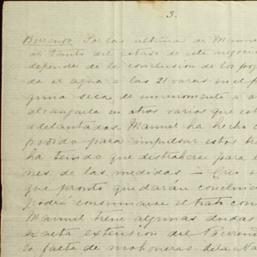 3.
Berrendo. Por las ultimas de Manuel
al tanto del estado de este negocio
depender de la conclusion de los poz
da el agua a las 21 varas en el p
guna seca de un momento a o
alcanzarla en otros varios que est
adelantados. Manuel ha hecho c
posible para impulsar estos
ha tenido que distraerse para
nes de las medidas — Creo
que pronto quedarán concluid
podrá consumarse el trato con
Manuel tiene algunas dudas
exacta extension del Berren
la falta de mohoneras de la